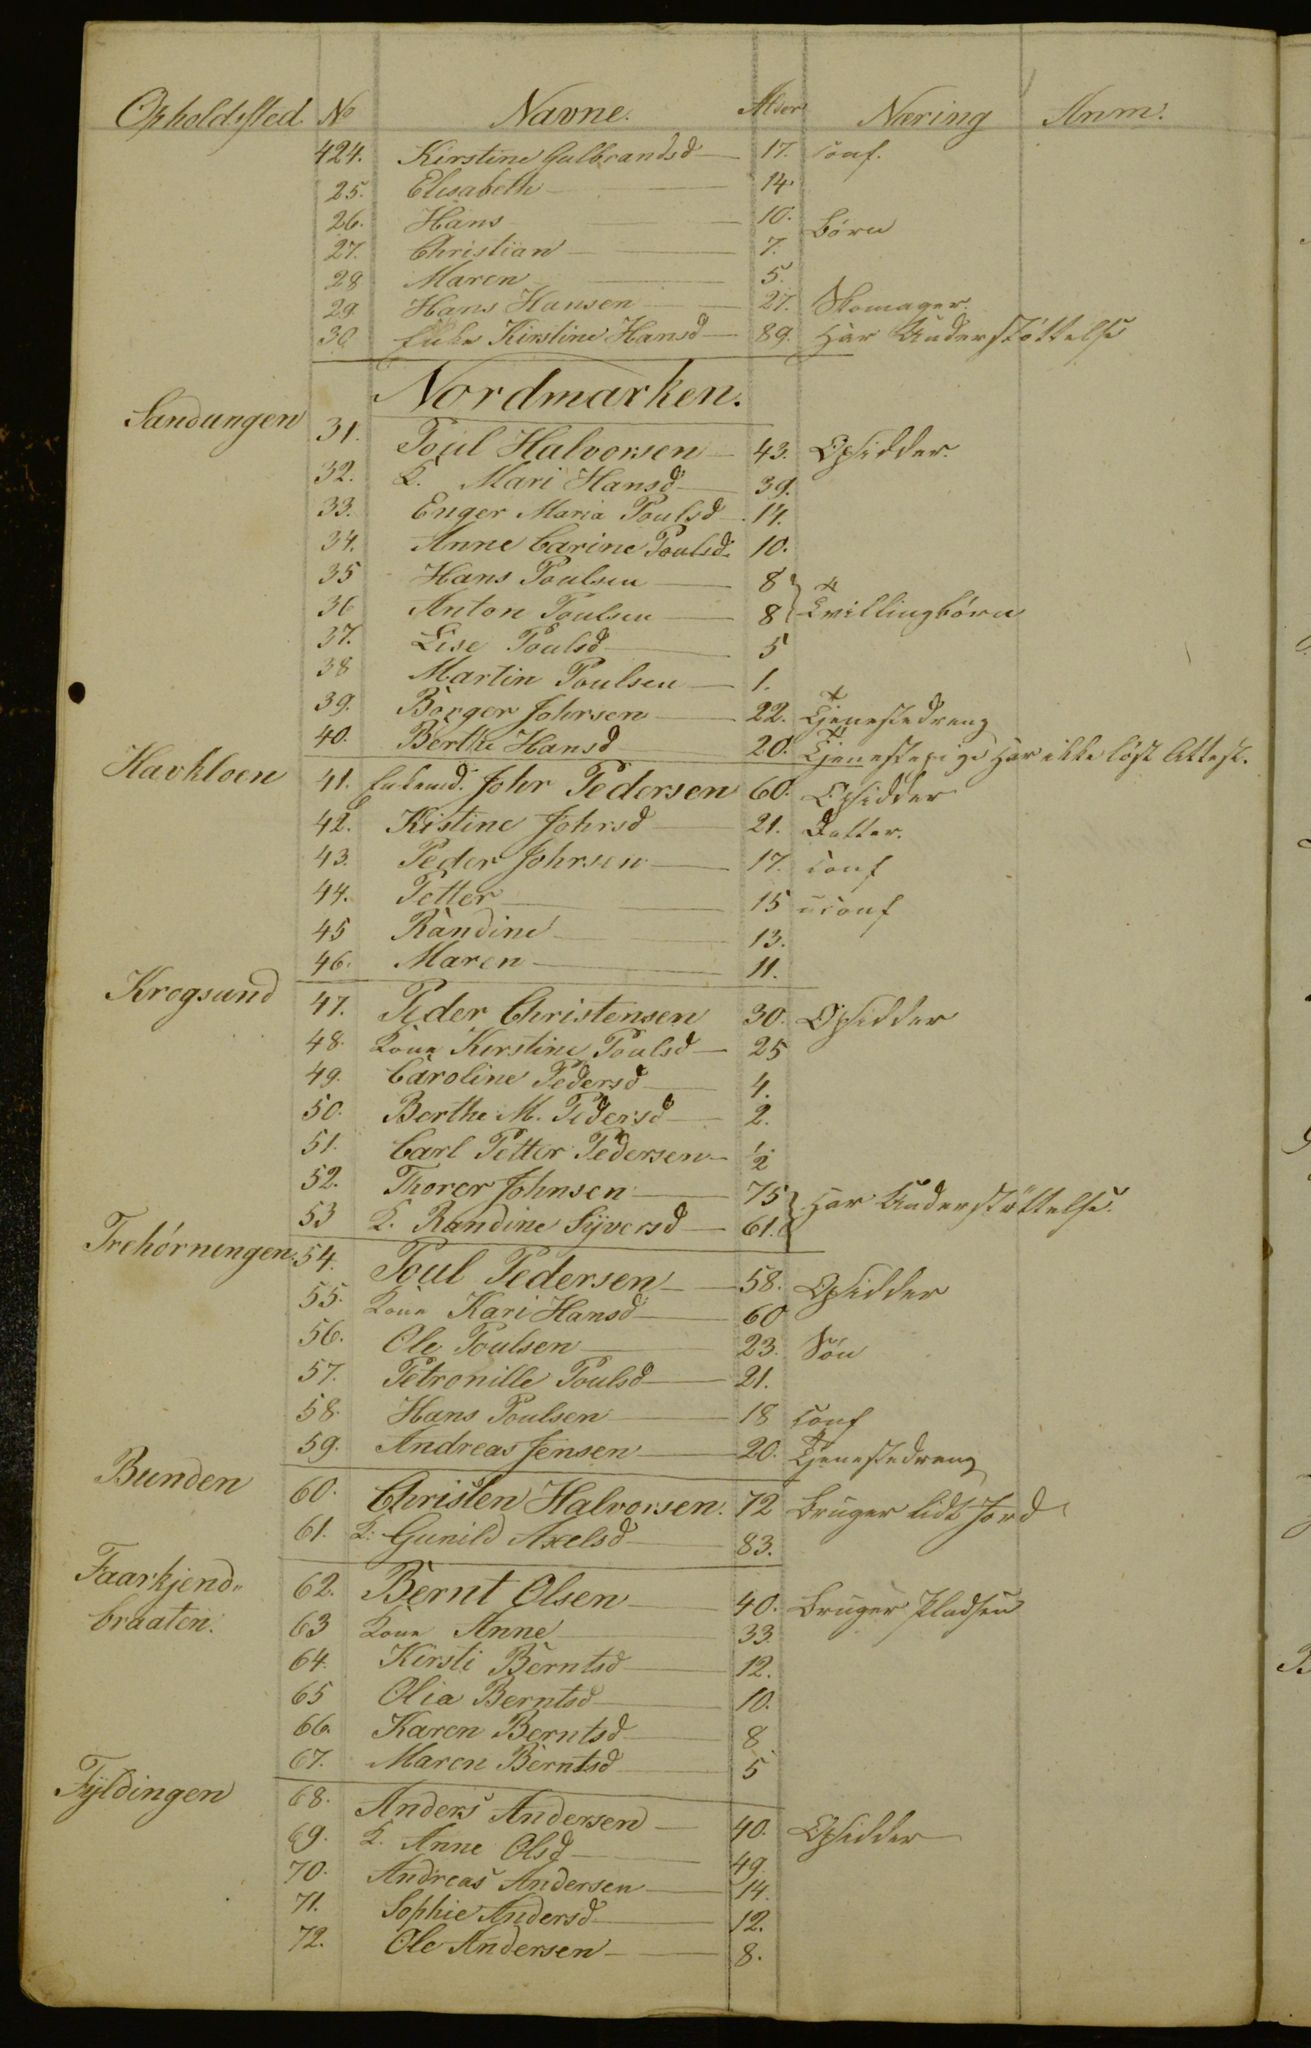 Opholdssted No Navne. Alder Næring Anm:
424. Kirstine Gulbrandsd 17. conf.
25. Elisabeth 14
26. Hans 10. Børn
27. Christian 7.
28 Maren 5.
29 Hans Hansen 27. Skomager.
30 Enke Kirstine Hansd 89. har Understøttelse
Nordmarken.
Sandungen 31. Poul Halvorsen 43. Opsidder.
32. K. Mari Hansd 39.
33. Enger Maria Poulsd 14.
34. Anne Carine Poulsd 10.
35 Hans Poulsen 8
36 Anton Poulsen 8 Tvillingbørn
37. Lise Poulsd 5
38 Martin Poulsen 1.
39. Börger Johrsen 22. Tjenestedreng
40. Berthe Hansd 20. Tjenestepige har ikke løst Attest.
Havkloen 41. Enkemd. Johr Pedersen 60. Opsidder
42. Kistine Johrsd 21. Datter.
43. Peder Johrsen 17. conf
44. Petter 15 uconf
45 Randine 13.
46. Maren 11.
Krogsund 47. Peder Christensen 30. Opsidder
48. Kone Kerstine Poulsd 25
49. Caroline Pedersd 4.
50. Berthe M. Pedersd 2.
51. Carl Petter Pedersen ½
52. Thorer Johnsen 75 har Understøttelse.
53 K. Randine Syversd 61.
Trehörningen 54. Poul Pedersen 58. Opsidder
55. Kone Kari Hansd 60
56. Ole Poulsen 23. Søn
57. Petronille Poulsd 21.
58. Hans Poulsen 18 conf
59. Andreas Jensen 20. Tjenestedreng
Bunden 60. Christen Halvorsen. 72 bruger lidt Jord
61. K: Gunild Axelsd 83.
Faarkjend- 62. Bernt Olsen 40. bruger Pladsen
braaten. 63 Kone Anne 33.
64. Kersti Berntsd 12.
65 Olia Berntsd 10.
66. Karen Berntsd 8
67. Maren Berntsd 5
Fyldingen 68. Anders Andersen 40. Opsidder
69. K. Anne Olsd 49.
70. Andreas Andersen 14.
71. Sophie Andersd 12.
72. Ole Andersen 8.